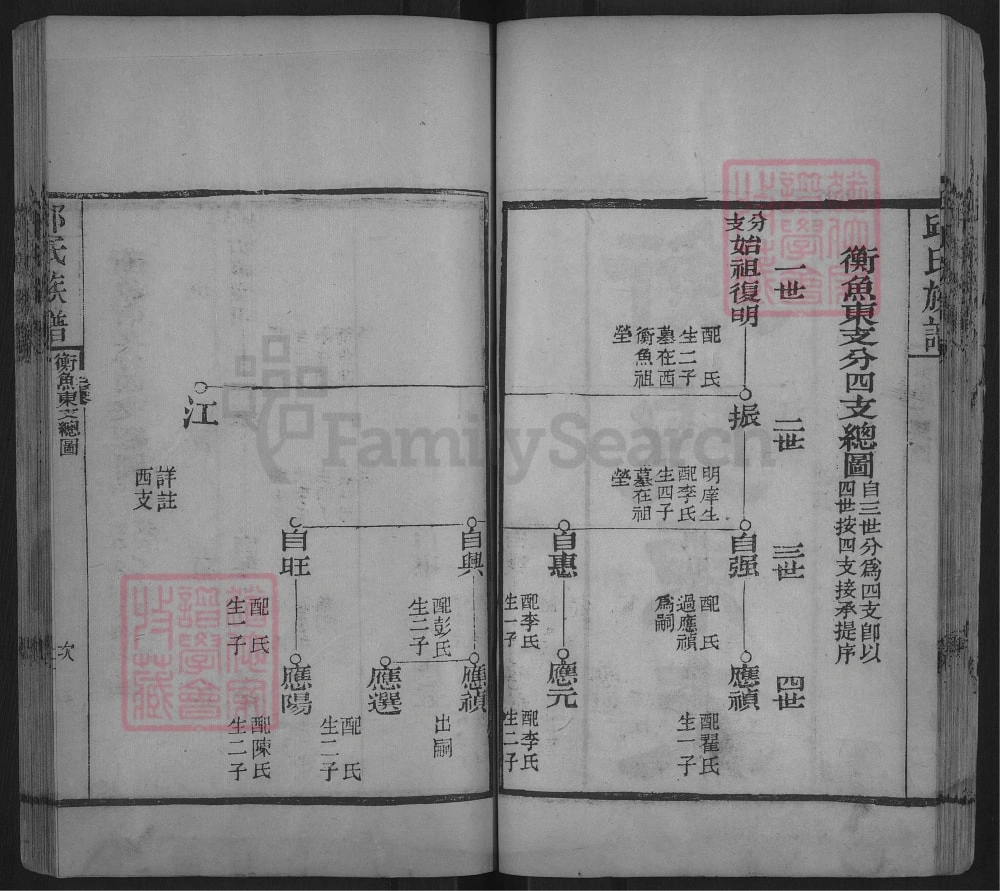 邱氏族譜
衡魚東支分四支總圖
自三世分爲四支卽以
四世按四支接承提序
一世
二世
三世
四世
分支
始祖復明
配　氏
生二子
墓在西
衡魚祖
塋
振
明庠生
配李氏
生四子
墓在祖
塋
自强
配　氏
過應禎
爲嗣
應禎
配翟氏
生一子
自惠
配李氏
生一子
應元
配李氏
生二子
自興
配彭氏
生二子
應禎
出嗣
應選
配　氏
生二子
自旺
配　氏
生一子
應陽
配陳氏
生二子
江
詳註
西支
邱氏族譜
衡魚東支總圖
次
FamilySearch